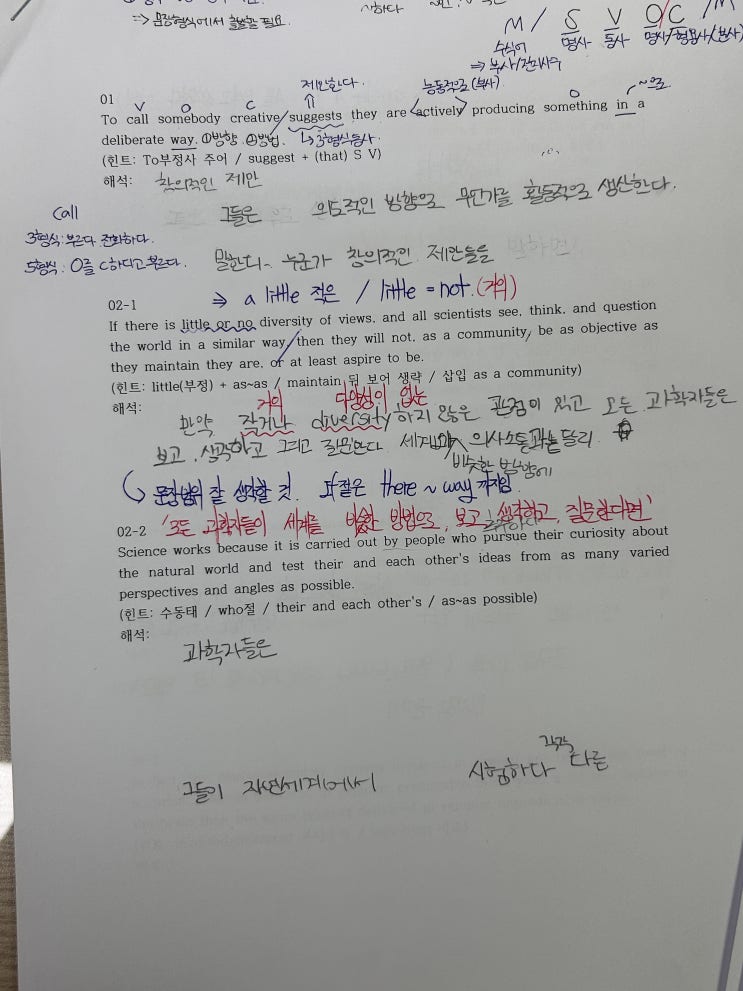 ⇒ 문장형식에서 출발할 필요.
M / S V O C / M
수식어 명사 동사 명사/형용사/(분사)
⇒ 부사/전치사구
제안한다. 능동적으로 (부사)
V O C ⇑ O ~으로
01
To call somebody creative/suggests they are <actively> producing something in a
deliberate way. ①방향 ②방법. ↳3형식동사
(힌트: To부정사 주어 / suggest + (that) S V)
해석: 창의적인 제안
그들은 의도적인 방향으로 무언가를 활동적으로 생산한다.
call
3형식: 부르다 전화하다.
5형식: O를 C하다고 부르다.
말한다~ 누군가 창의적인 제안들을
⇒ a little 적은 / little = not.(거의)
02-1
If there is little or no diversity of views, and all scientists see, think, and question
the world in a similar way, then they will not, as a community, be as objective as
they maintain they are, or at least aspire to be.
(힌트: little(부정) + as~as / maintain 뒤 보어 생략 / 삽입 as a community)
거의 다양성이 없는
해석: 만약 작거나 diversity하지 않은 관점이 있고 모든 과학자들은
보고, 생각하고 그리고 질문한다 세계 의사소통과는 달리.
비슷한 방향에
문장범위 잘 생각할 것. If절은 there ~ way 까지임.
'모든 과학자들이 세계를 비슷한 방법으로, 보고, 생각하고, 질문한다면'
02-2
Science works because it is carried out by people who pursue their curiosity about
the natural world and test their and each other's ideas from as many varied
perspectives and angles as possible.
(힌트: 수동태 / who절 / their and each other's / as~as possible)
해석:
과학자들은
그들이 자연세계에서 시험하다 각각 다른